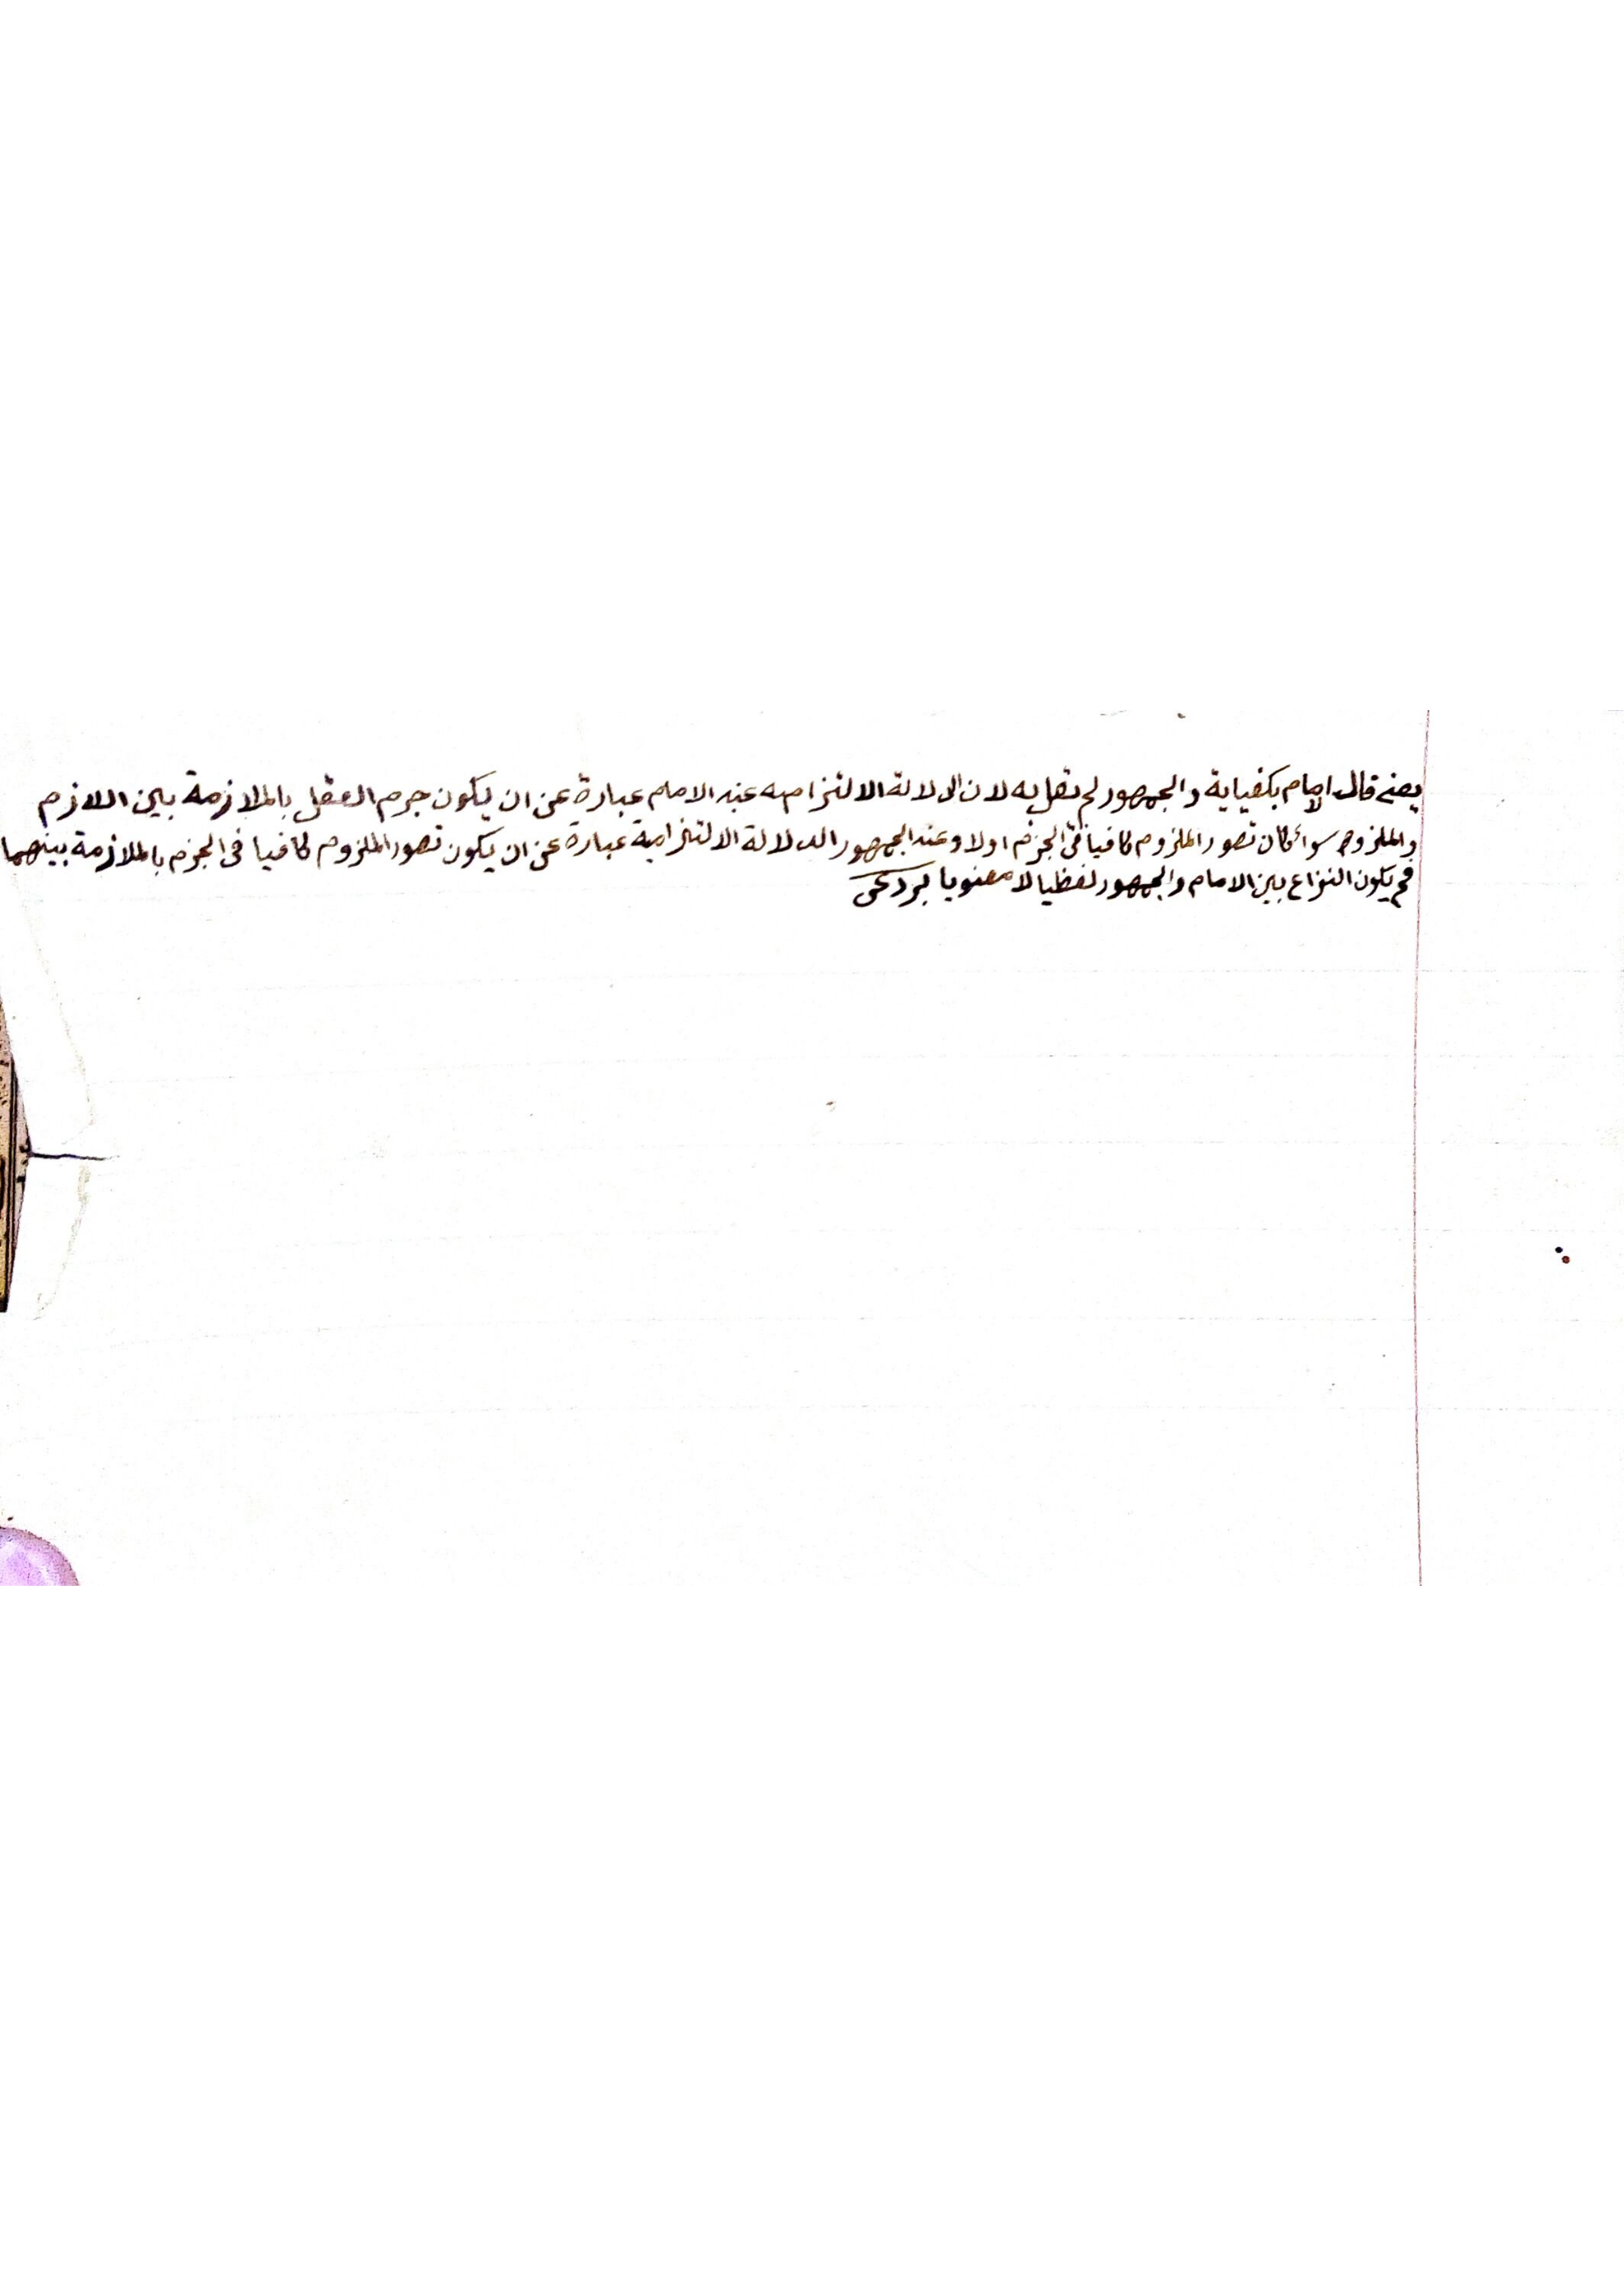 يعنى قال الامام بكفياية والجمهور لم تقل به لان الدلالة الالتزامه عند الامام عبارة عن ان يكون جرم العقل بالملازمة بين اللازم
والملزوم سوائكان تصور الملزوم كافيا فى الجزم اولا وعند الجمهور الدلالة الالتزامية عبارة عن ان يكون تصور الملزوم كافيا فى الجزم بالملازمة بينهما
فح يكون النزاع بين الامام والجمهور لفظيا لا معنويا بردعى